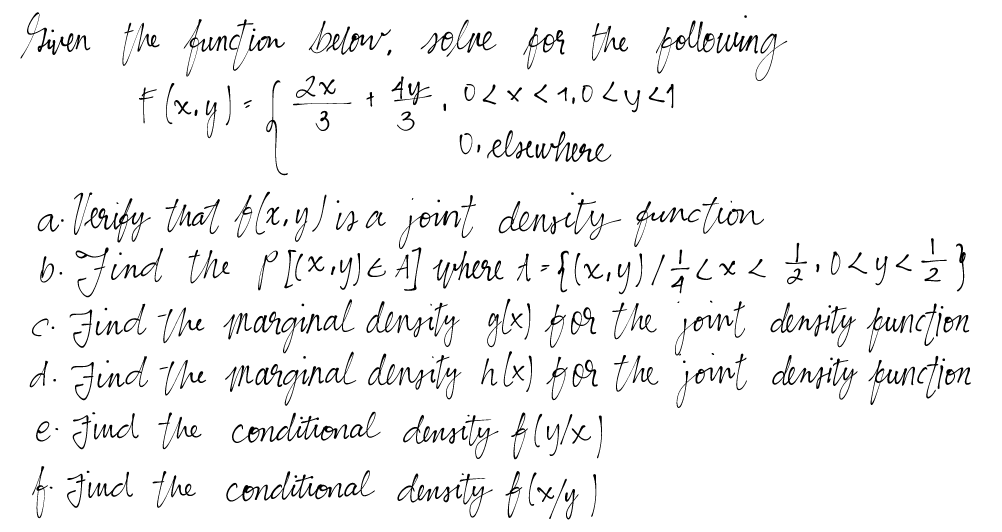 Given the function below, solve for the following
F(x,y) = { 2x/3 + 4y/3, 0<x<1, 0<y<1
0, elsewhere
a. Verify that f(x,y) is a joint density function
b. Find the P[(x,y)∈A] where A = {(x,y) / 1/4 < x < 1/2, 0<y<1/2}
c. Find the marginal density g(x) for the joint density function
d. Find the marginal density h(x) for the joint density function
e. Find the conditional density f(y/x)
f. Find the conditional density f(x/y)